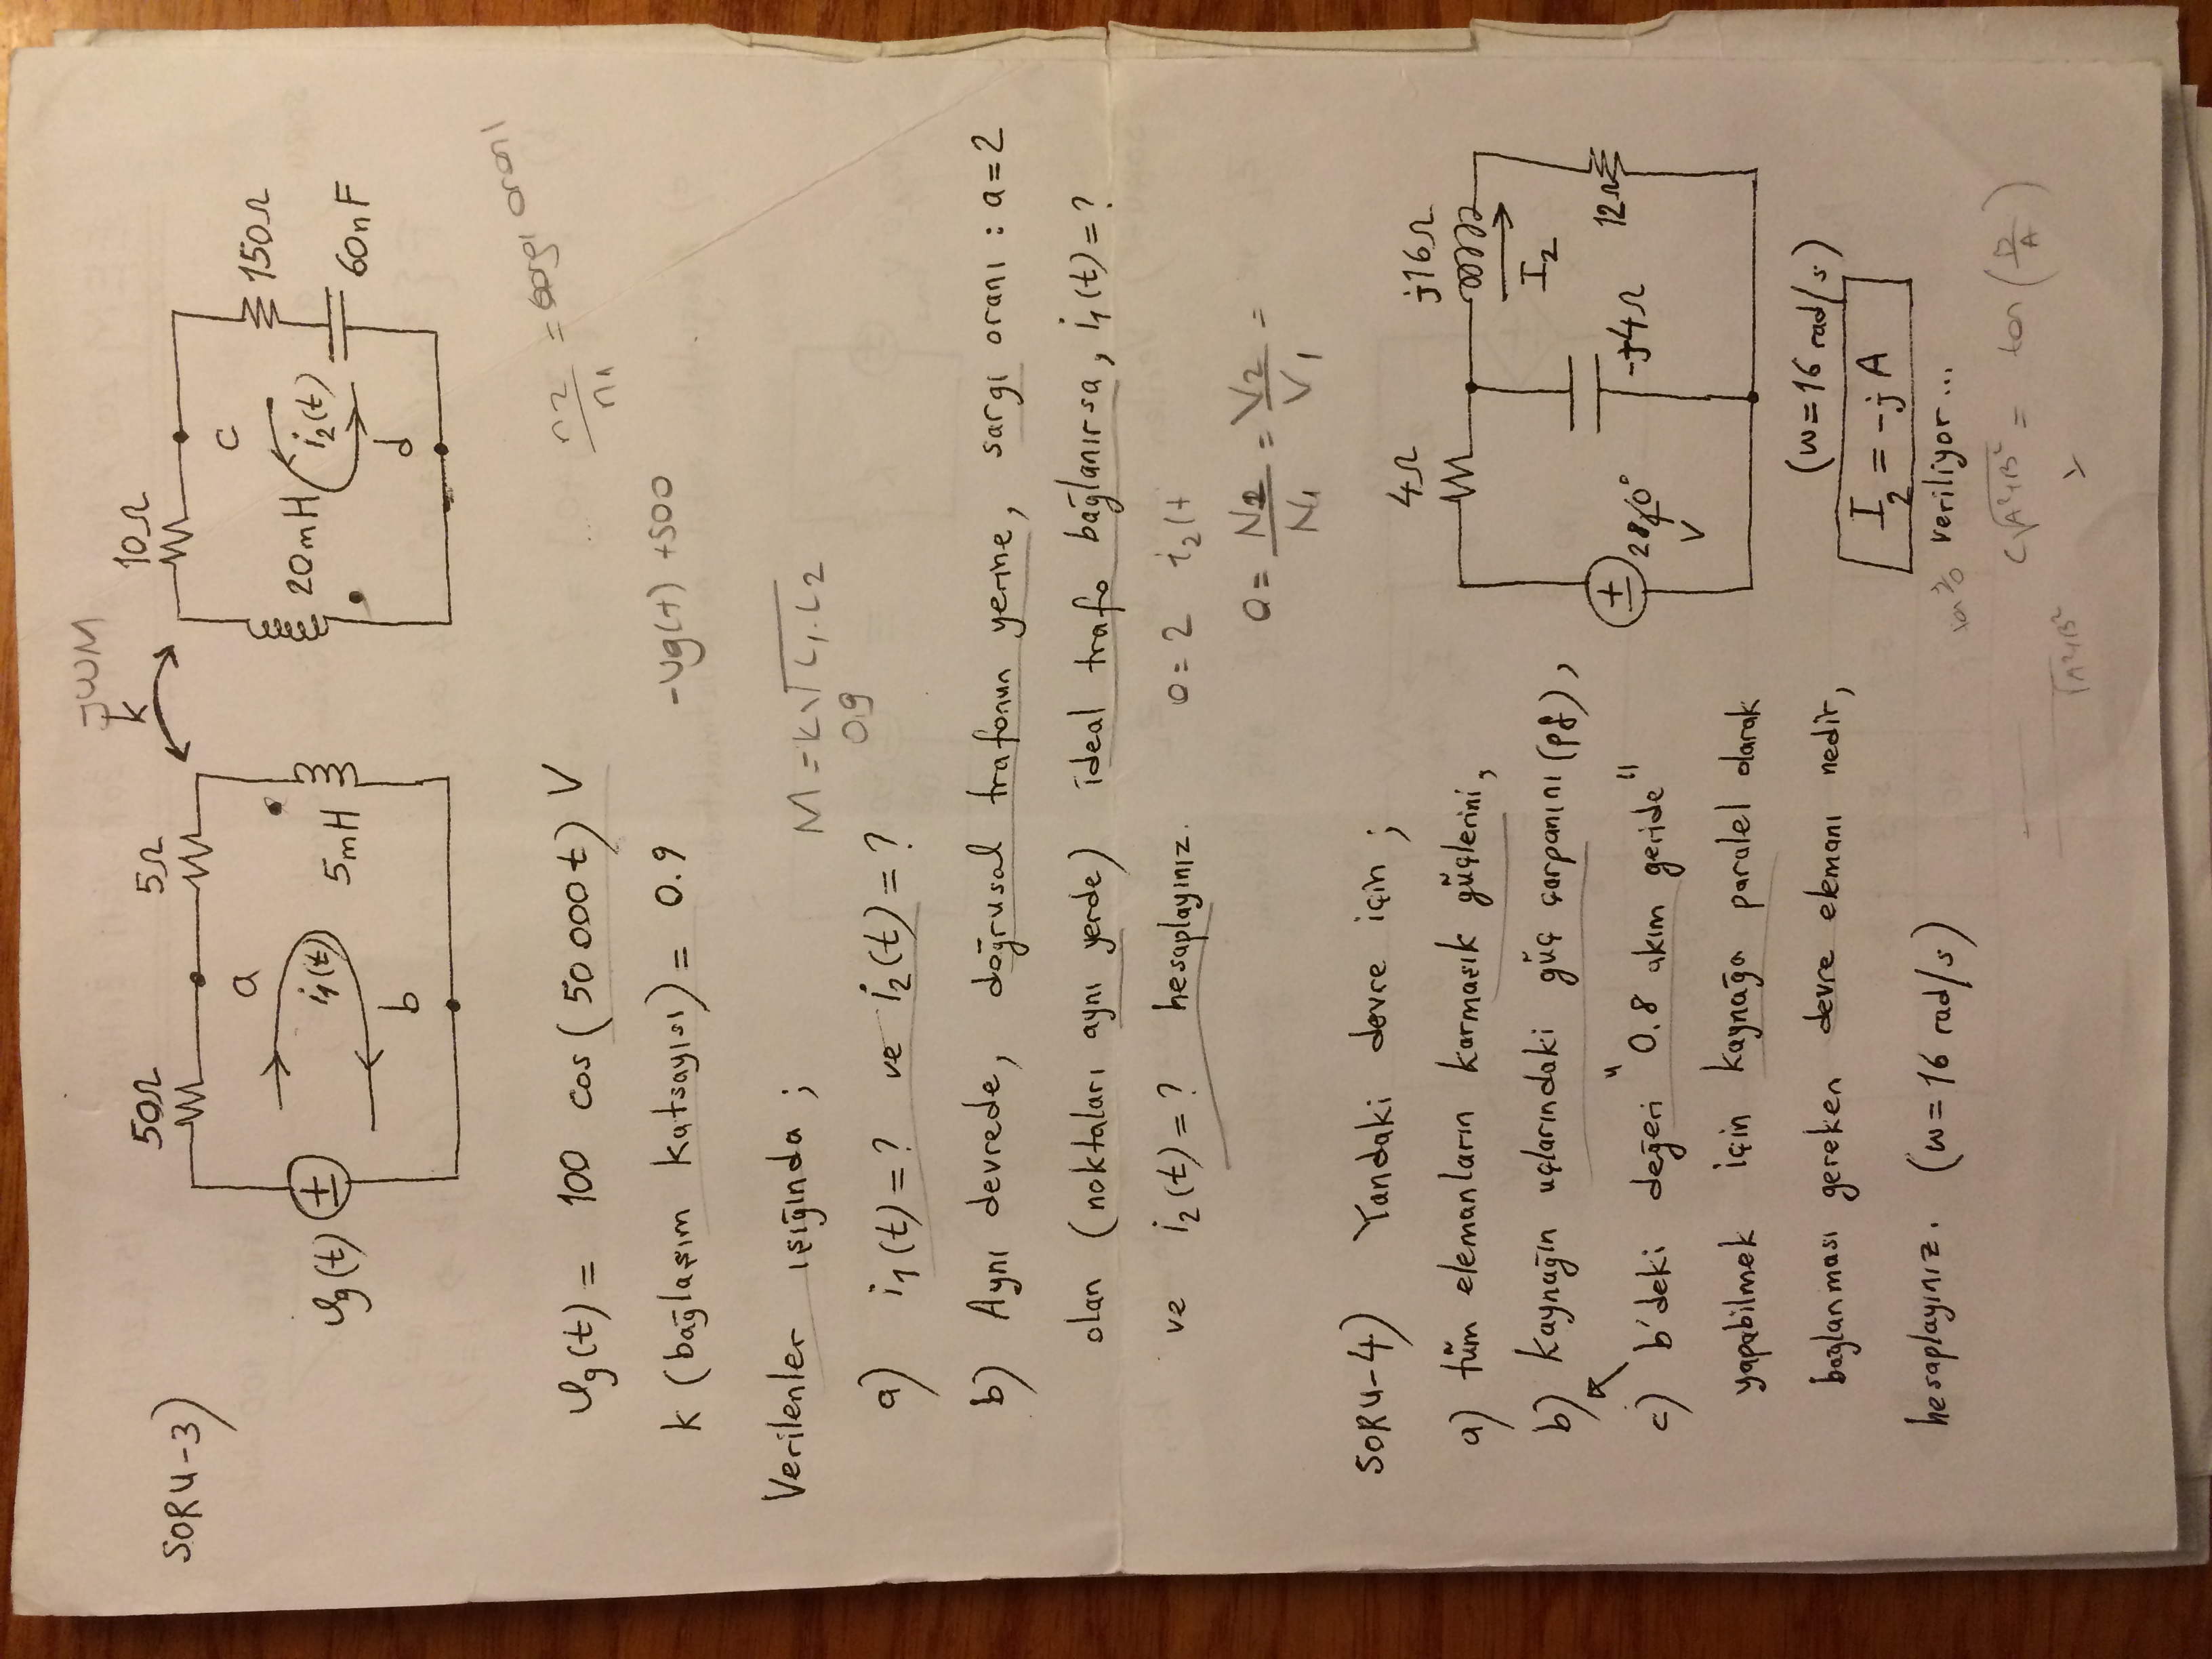 jWM
k
SORU-3)
50Ω
5Ω
10Ω
a
c
150Ω
υg(t)
i₁(t)
5mH
20mH
i₂(t)
60nF
b
d
υg(t) = 100 cos(50 000t) V
n2 / n1 = sargı oranı
k (bağlaşım katsayısı) = 0.9
-Ug(t) +500
Verilenler ışığında ;
M = k√L₁.L₂
0,9
a) i₁(t) = ? ve i₂(t) = ?
b) Aynı devrede, doğrusal trafonun yerine, sargı oranı : a=2
olan (noktaları aynı yerde) ideal trafo bağlanırsa, i₁(t) = ?
ve i₂(t) = ? hesaplayınız.
a = 2 i₂(t
a = N2 / N1 = V2 / V1 =
SORU-4) Yandaki devre için ;
4Ω
j16Ω
a) tüm elemanların karmaşık güçlerini,
I₂
b) kaynağın uçlarındaki güç çarpanını (pf),
12Ω
28∠0°
V
-j4Ω
c) b'deki değeri "0.8 akım geride"
yapabilmek için kaynağa paralel olarak
bağlanması gereken devre elemanı nedir,
(w=16 rad/s)
I₂ = -j A
hesaplayınız. (w = 16 rad/s)
veriliyor...
C√A²+B² = tan(B/A)
√A²+B²